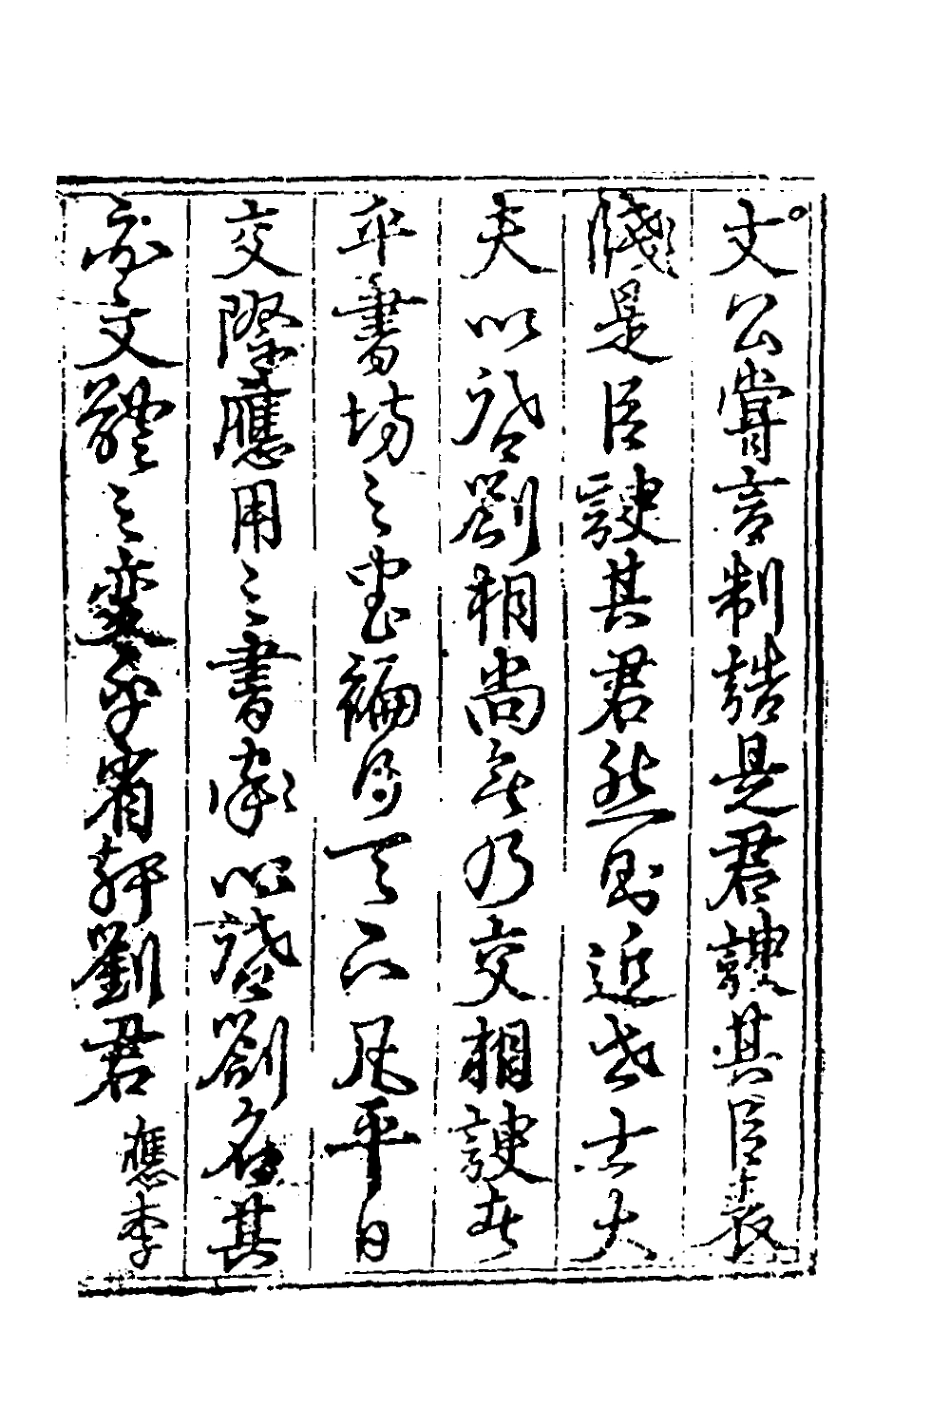 文公嘗言制誥是君諛其臣表
牋是臣諛其君然則近世士大
夫以啓劄相尚無乃交相諛者
卒書坊之書編月天下凡平日
交際應用之書以啓劄名其
亦文體之變乎省軒劉君應李